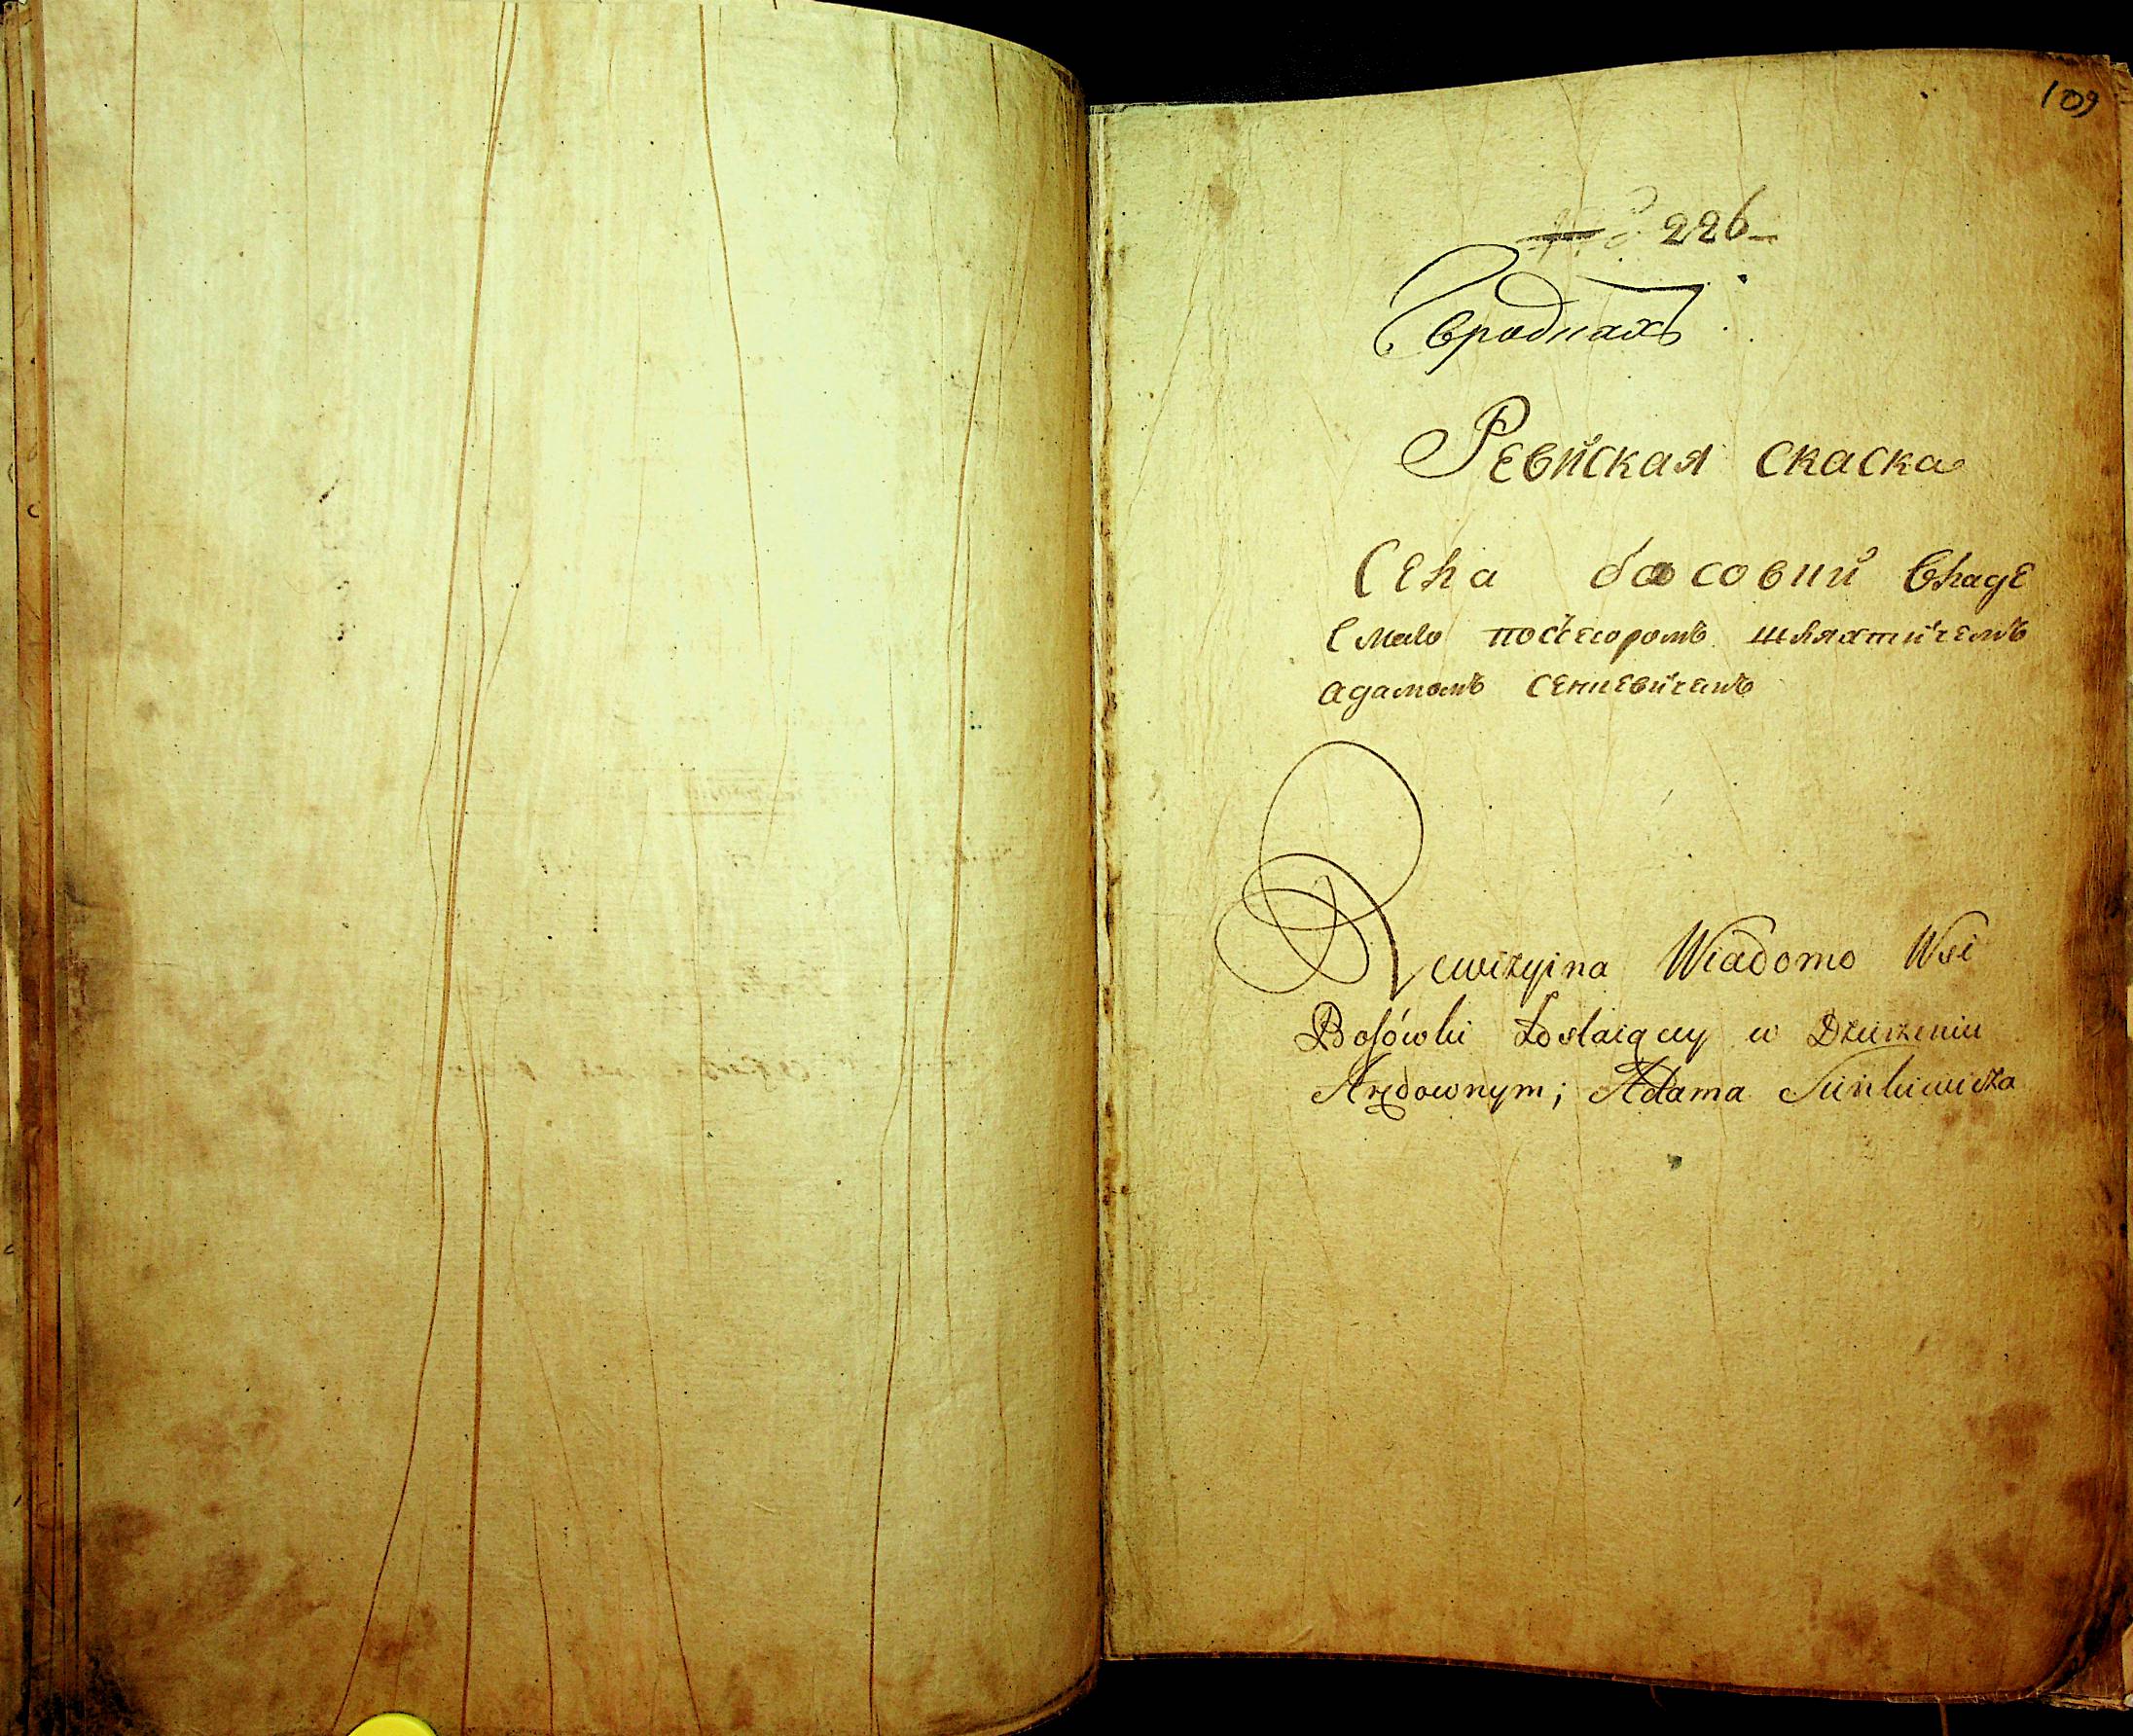 109
226
вродныхъ
Ревйская скаска
Села басовки владе
емало посесоромъ шляхтичемъ
адамомъ сенкевичемъ
Rewizyina Wiadomo Wsi
Bosówki Zostaiący w Dzierżeniu
Arędownym; Adama Sinkiewicza